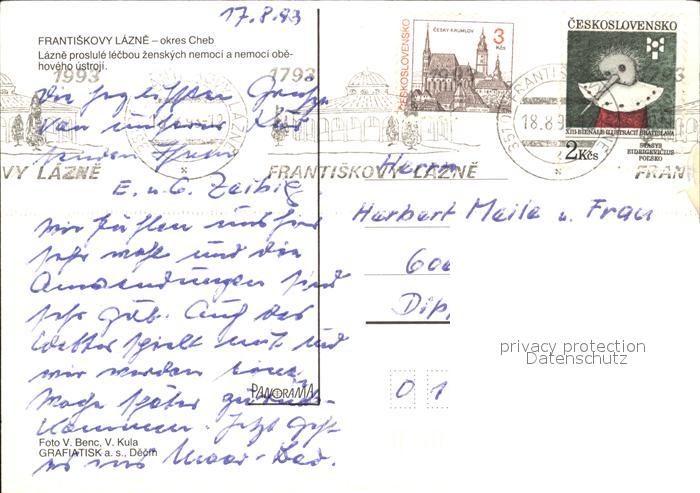 17.8.93
FRANTIŠKOVY LÁZNĚ – okres Cheb
Lázně proslulé léčbou ženských nemocí a nemocí obě-
hového ústrojí.
1993 1793 1993
Die herzlichsten Grüße
von unserer Kur
senden Ihnen
E. u. G. Zeibig
Wir fühlen uns hier
sehr wohl und die
Anwendungen sind
sehr gut. Auch das
Wetter spielt mit und
wir werden eine
Woche später zurück-
kommen. Jetzt geht
es ins Moor-Bad.
PANORAMA
Foto V. Benc, V. Kula
GRAFIATISK a. s., Děčín
ČESKOSLOVENSKO
ČESKÝ KRUMLOV
3
Kčs
ČESKOSLOVENSKO
XIII BIENALE ILUSTRÁCIÍ BRATISLAVA
2 Kčs
STASYS
EIDRIGEVIČIUS
POĽSKO
18.8.9
OVY LÁZNĚ FRANTIŠKOVY LÁZNĚ FRAN
Herrn
Herbert Maile u. Frau
600
Dip
privacy protection
Datenschutz
0 1